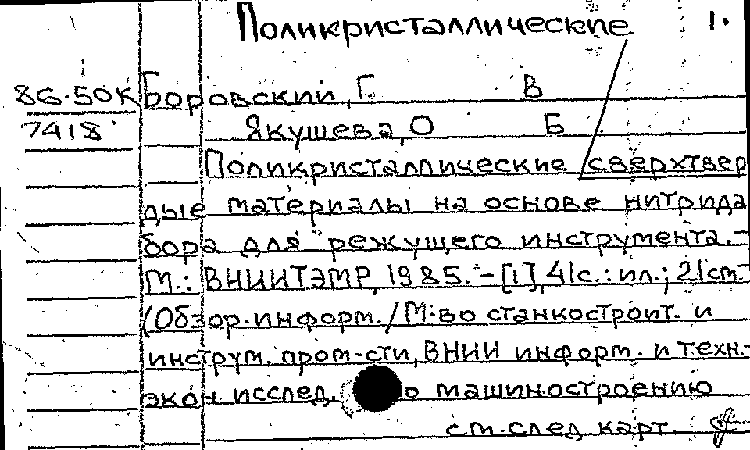 Поликристаллические 1.
86-50К Боровский, Г. В
7418 Якушева, О Б
Поликристаллические сверхтвер
дые материалы на основе нитрида
бора для режущего инструмента.-
М.: ВНИИТЭМР, 1985.-[1], 41с.: ил.; 21см.
(Обзор.информ./М-во станкостроит. и
инструм. пром-сти, ВНИИ информ. и техн.-
экон исслед. по машиностроению
см.след карт.